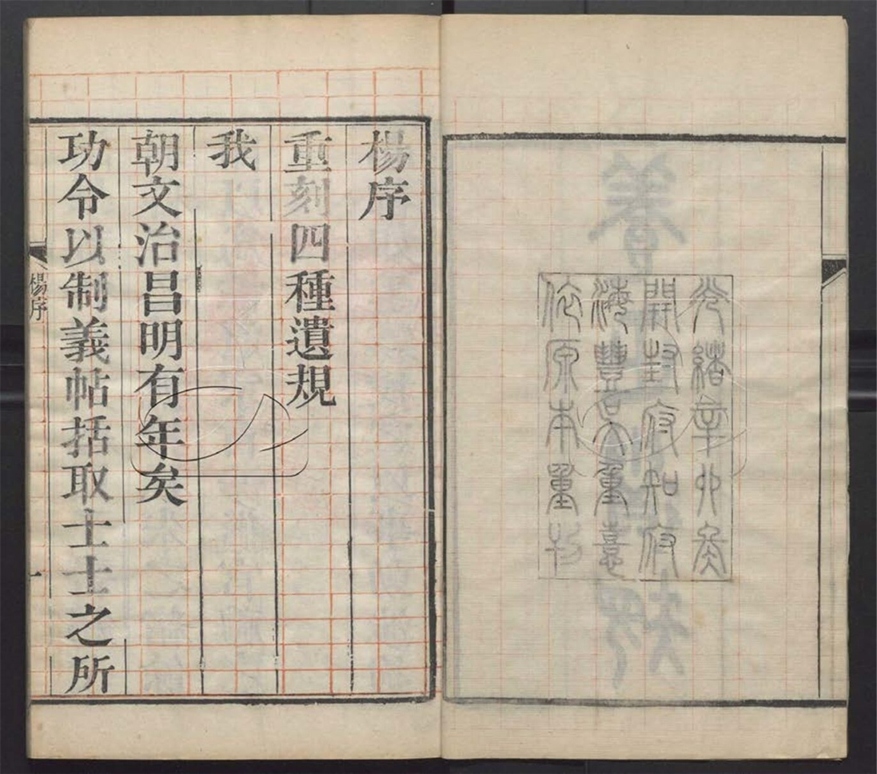 光緒辛卯冬
開封府知府
海豐吳重憙
依原本重刊
楊序
重刻四種遺規
我
朝文治昌明有年矣
功令以制義帖括取士士之所
楊序
一